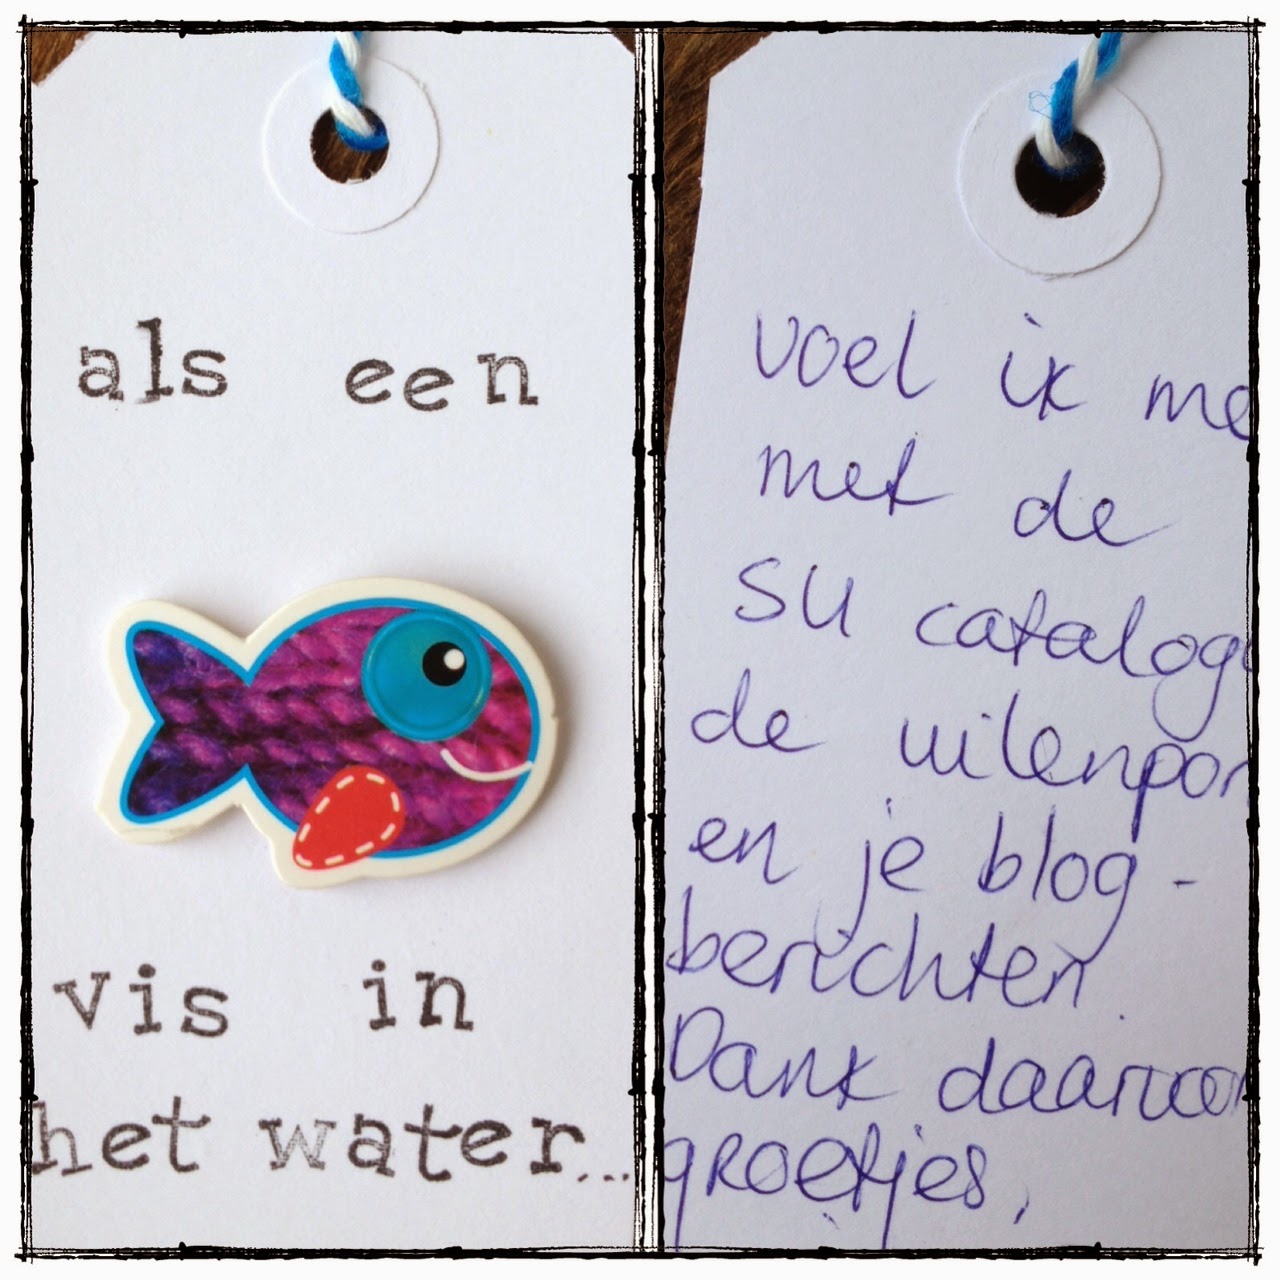 als een
vis in
het water...
voel ik me
met de
SU catalog
de uilenpon
en je blog-
berichten.
Dank daarvoor
groetjes,